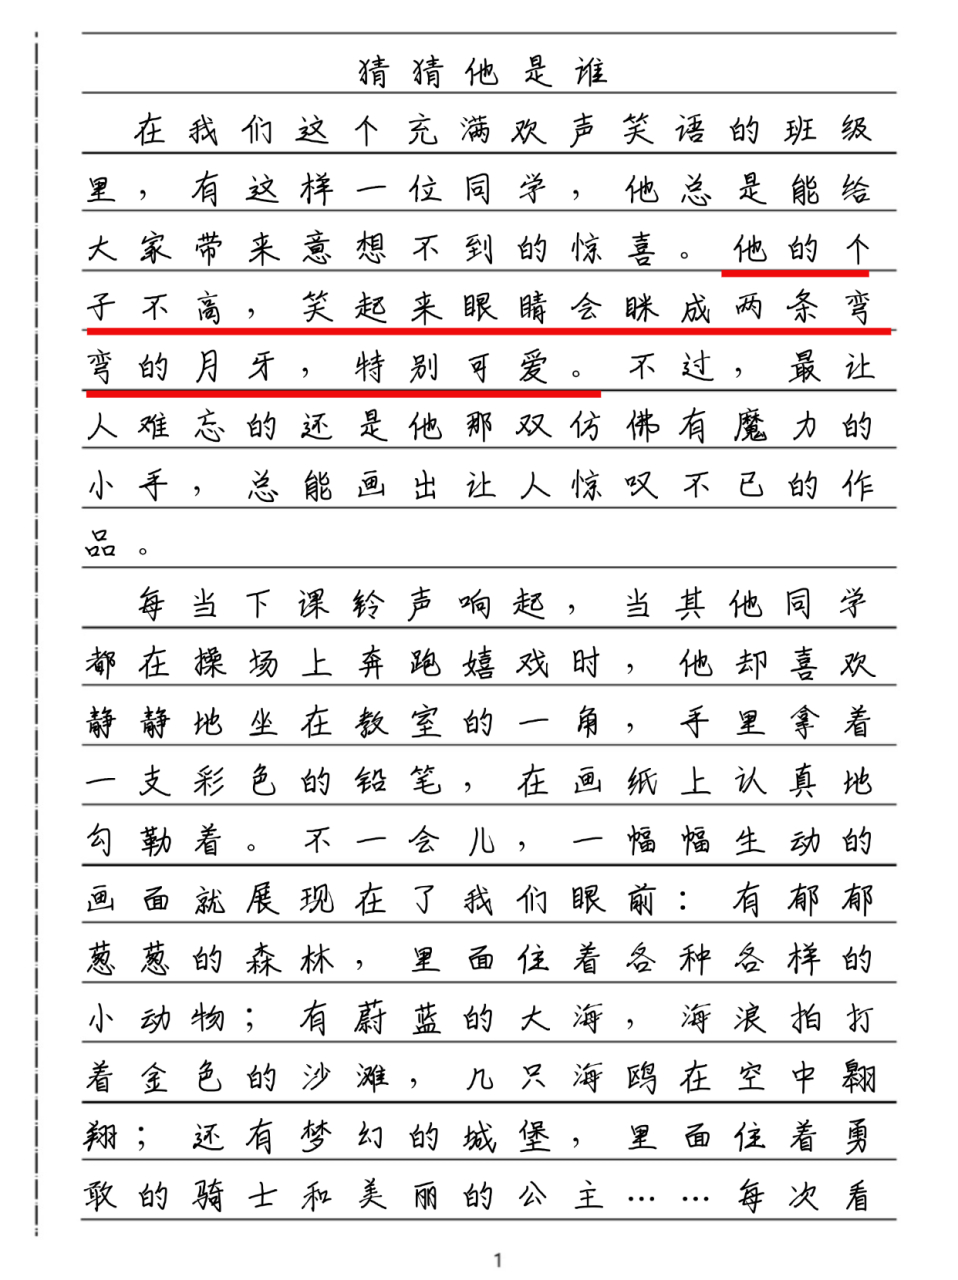 猜猜他是谁
在我们这个充满欢声笑语的班级
里，有这样一位同学，他总是能给
大家带来意想不到的惊喜。他的个
子不高，笑起来眼睛会眯成两条弯
弯的月牙，特别可爱。不过，最让
人难忘的还是他那双仿佛有魔力的
小手，总能画出让人惊叹不已的作
品。
每当下课铃声响起，当其他同学
都在操场上奔跑嬉戏时，他却喜欢
静静地坐在教室的一角，手里拿着
一支彩色的铅笔，在画纸上认真地
勾勒着。不一会儿，一幅幅生动的
画面就展现在了我们眼前：有郁郁
葱葱的森林，里面住着各种各样的
小动物；有蔚蓝的大海，海浪拍打
着金色的沙滩，几只海鸥在空中翱
翔；还有梦幻的城堡，里面住着勇
敢的骑士和美丽的公主……每次看
1